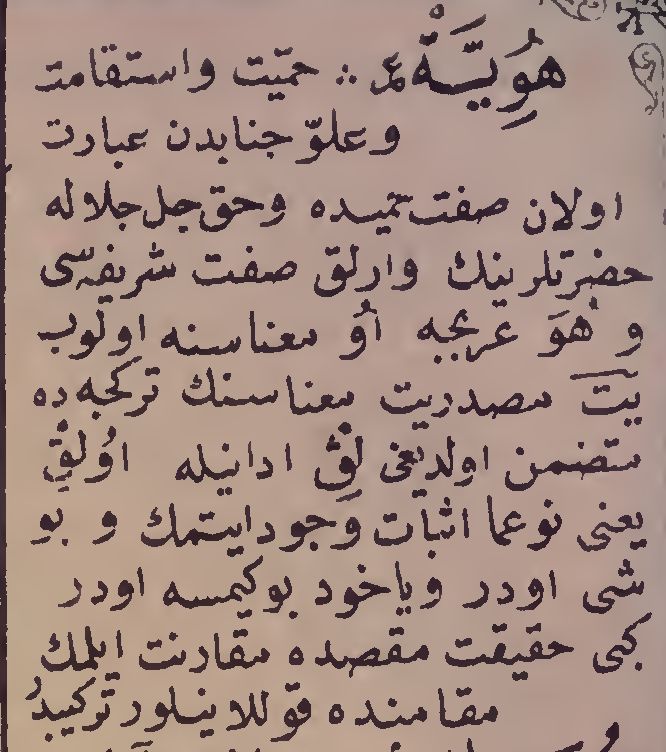 هُوِيَّةْ ع ∴ حمیّت واستقامت
وعلوّ جنابدن عبارت
اولان صفت حمیده وحق جل جلاله
حضرتلرینك وارلق صفت شریفه‌سی
و هُوَ عربجه اُو معناسنه اولوب
یَتْ مصدریت معناسنك تركجه ده
متضمن اولدیغی لِقْ ادانیله اُولِقْ
یعنی نوعما اثبات وجود ایتمك و بو
شی اودر ویاخود بو كیمسه اودر
كبی حقیقت مقصده مقارنت ایلمك
مقامنده قوللانیلور تركیبدُر